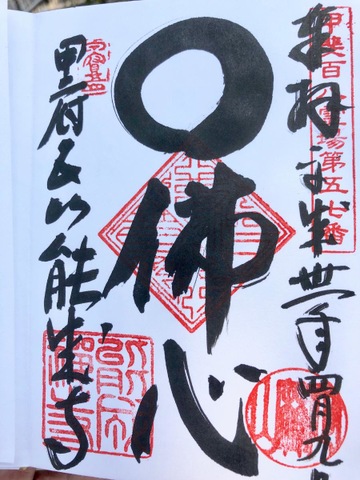 奉拝 平成卅一年四月九日
甲斐百八霊場第五七番
佛心
甲府五山能成寺